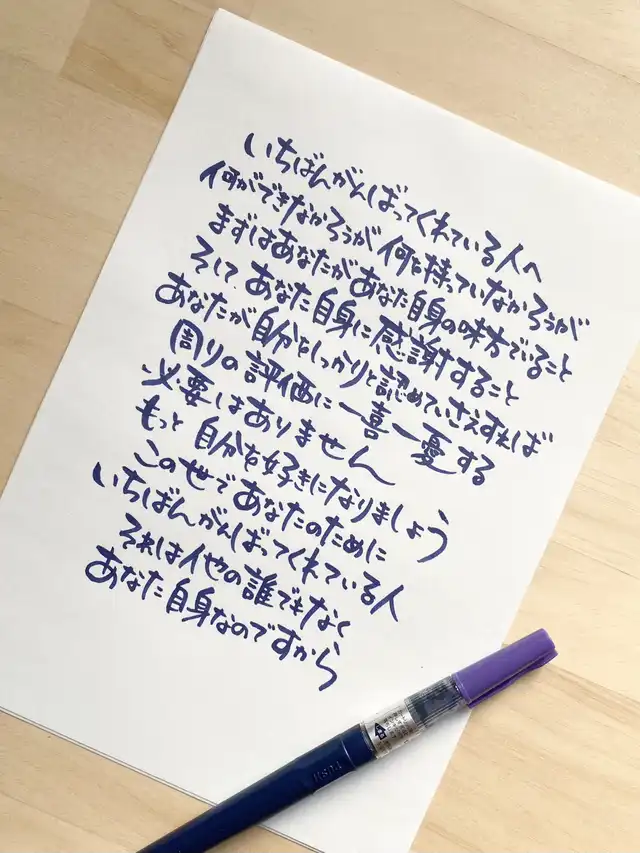 いちばんがんばってくれている人へ
何ができなかろうが 何を持っていなかろうが
まずはあなたがあなた自身の味方でいること
そして あなた自身に感謝すること
あなたが自分をしっかりと認めていさえすれば
周りの評価に一喜一憂する
必要はありません
もっと 自分を好きになりましょう
この世であなたのために
いちばんがんばってくれている人
それは他の誰でもなく
あなた自身なのですから